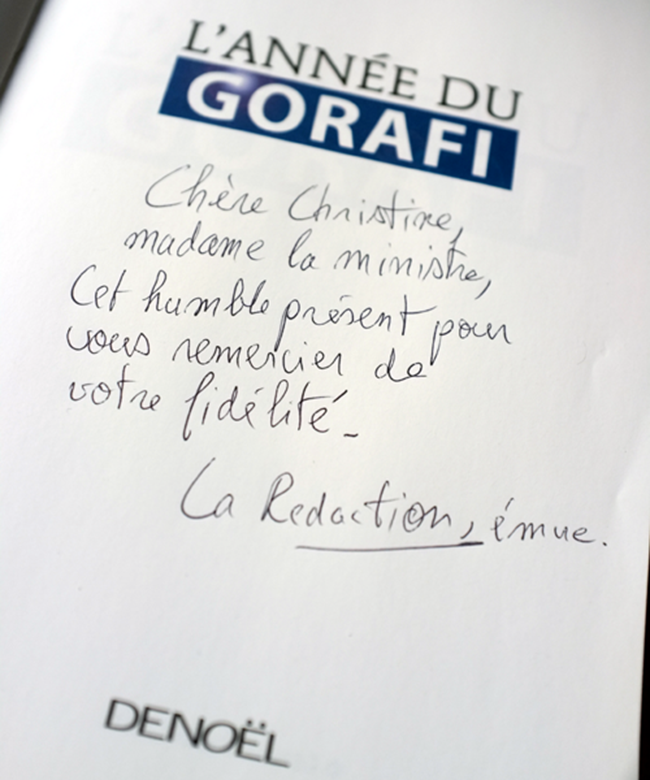 L'ANNÉE DU
GORAFI
Chère Christine,
madame la ministre,
Cet humble présent pour
vous remercier de
votre fidélité_
La Redaction, émue.
DENOËL